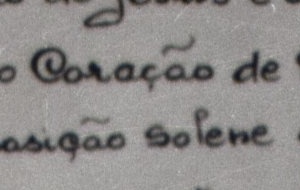 o Coração de
asição solene